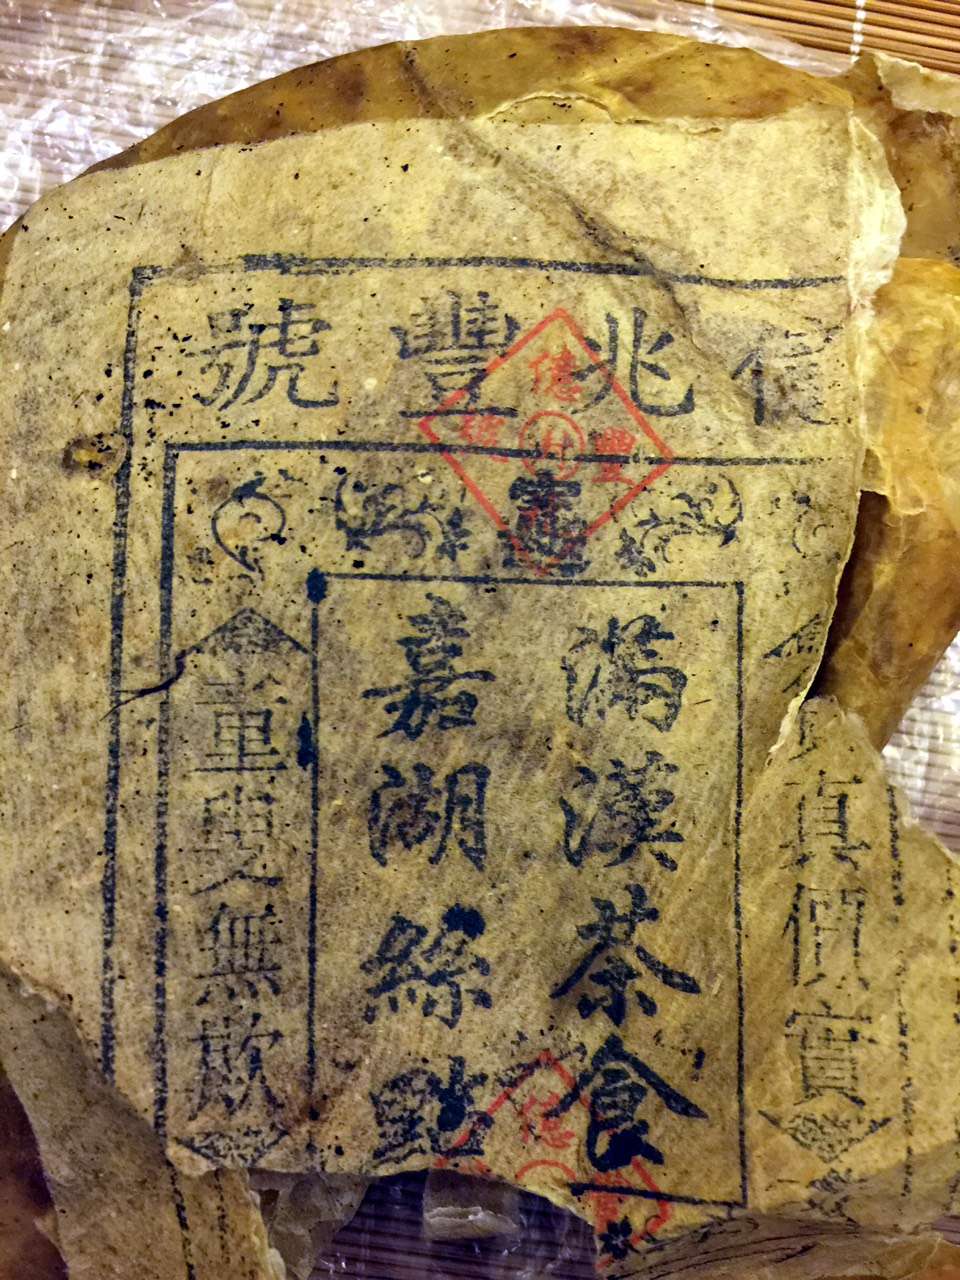 億兆豐號
貨真價實
滿漢茶食
嘉湖絲點
童叟無欺
億
豐
號